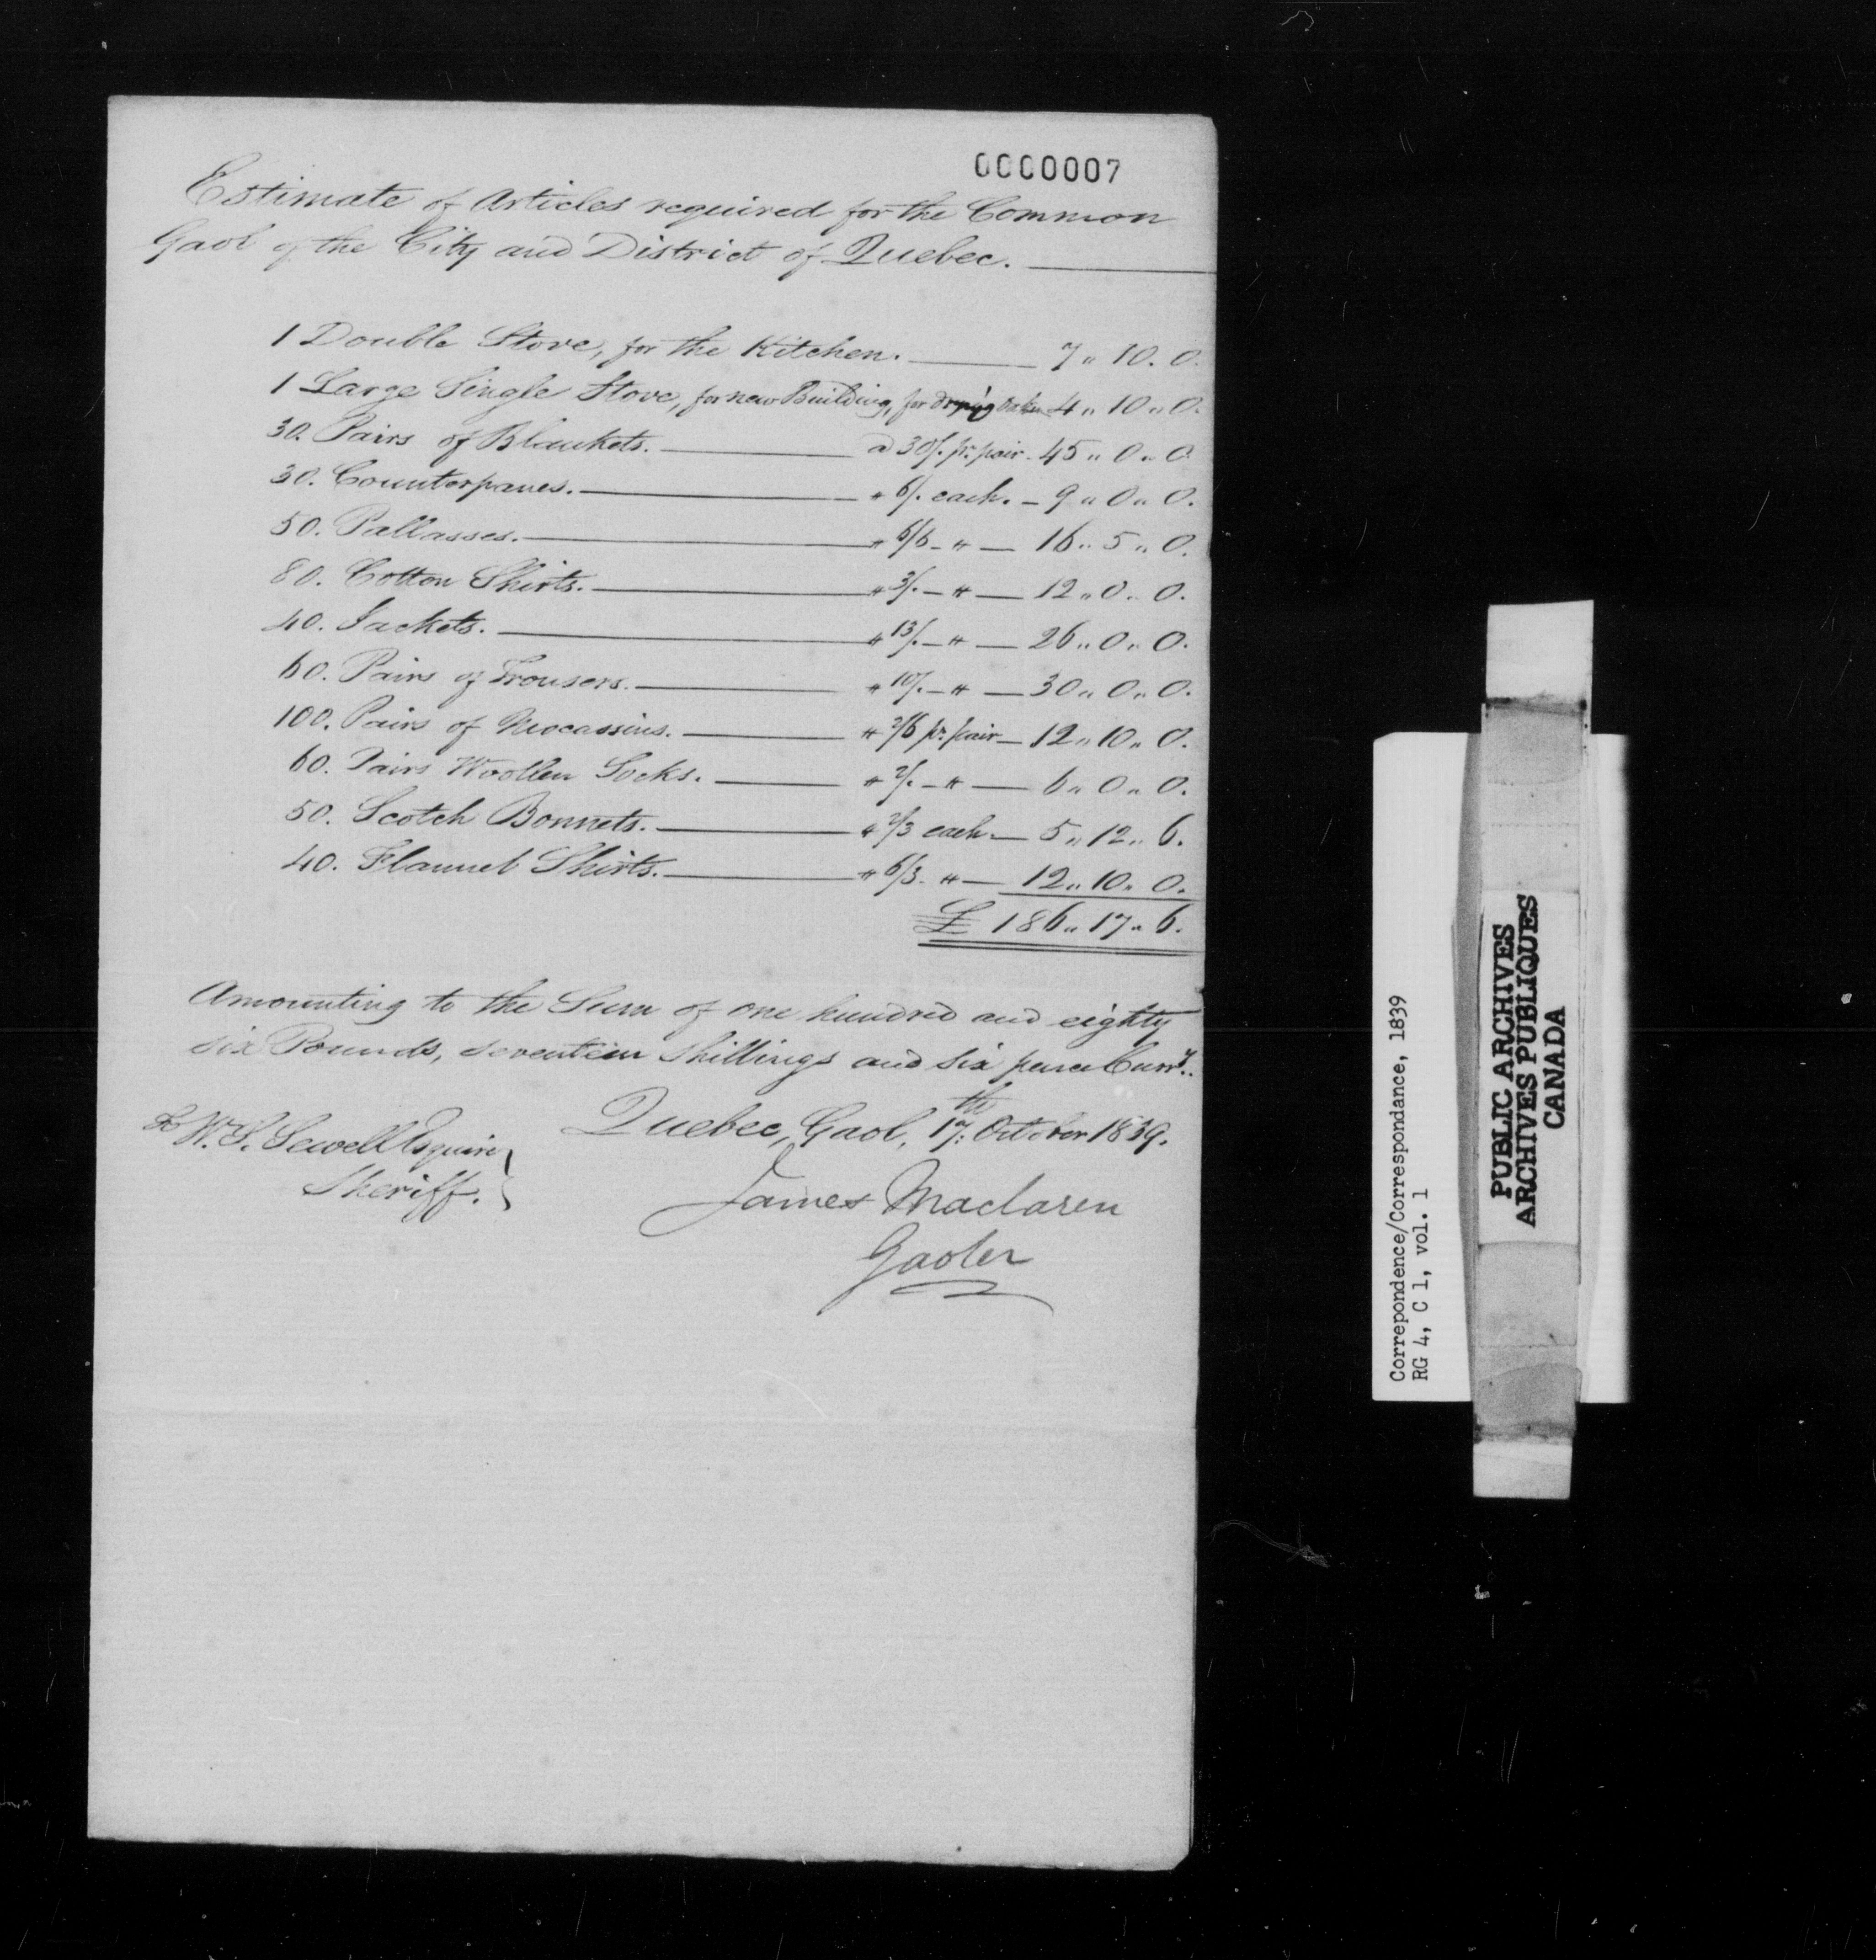 0000007
Estimate of Articles required for the Common
Gaol of the City and District of Quebec.
1 Double Stove, for the Kitchen. 7 " 10 . 0.
1 Large Single Stove, for new Building, for drying 4 " 10 " 0.
30. Pairs of Blankets. a 30/. pr. pair - 45 " 0 " 0
30. Counterpanes. " 6/. each. - 9 " 0 " 0.
50. Pallasses. " 6/6 - " - 16 " 5 " 0.
80. Cotton Shirts. " 3/. - " - 12 " 0 " 0.
40. Jackets. " 13/. - " - 26 " 0 " 0.
60. Pairs of Trousers. " 10/. - " - 30 " 0 " 0.
100. Pairs of Mocassins. " 2/6 pr. pair - 12 " 10 " 0.
60. Pairs Woollen Socks. " 2/. - " - 6 " 0 " 0.
50. Scotch Bonnets. " 2/3 each - 5 " 12 " 6.
40. Flannel Shirts. " 6/3 - " - 12 " 10 " 0.
£ 186 " 17 " 6.
Amounting to the Sum of one hundred and eighty
six Pounds, seventeen Shillings and six pence Curry..
Quebec, Gaol, 17th. October 1839.
To W. S. Sewell Esquire
Sheriff.
James Maclaren
Gaoler
Correpondence/Correspondance, 1839
RG 4, C 1, vol. 1
PUBLIC ARCHIVES
ARCHIVES PUBLIQUES
CANADA